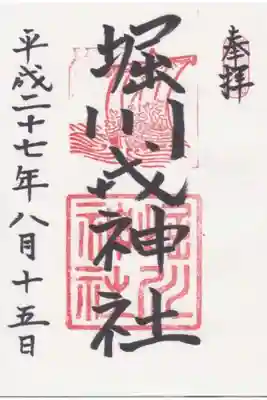 奉拝
堀川戎神社
平成二十七年八月十五日
堀川
神社